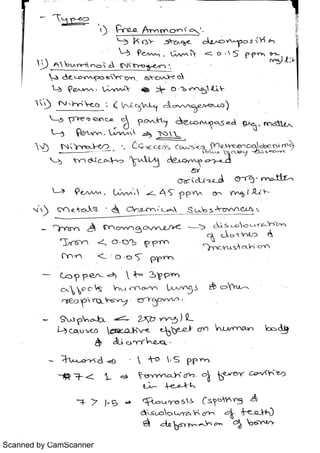 - Types
i) Free Ammonia:
↳ first stage decomposition
↳ Perm. limit < 0.15 ppm or mg/lit
ii) Albuminoid Nitrogen:
↳ decomposition started
↳ Perm. limit ⇒ 0.3 mg/lit
iii) Nitrites : (highly dangerous)
↳ presence of partly decomposed org. matter
↳ Perm. limit ⇒ NIL
iv) Nitrates : (excess causes
blue baby
↳ indicates fully decomposed
or
oxidized org. matter
↳ Perm. limit < 45 ppm or mg/lit
vi) Metals & Chemical Substances:
- Iron & manganese → discolouration
of clothes &
Iron < 0.03 ppm
incrustation
Mn < 0.05 ppm
- Copper ⇒ 1 to 3ppm
affects human lungs & other
respiratory organs.
- Sulphate < 250 mg/l
↳ causes laxative effect on human body
& diarrhea.
- Fluorid ⇒ 1 to 1.5 ppm
< 1 ⇒ formation of fewer cavities
in teeth
> 1.5 ⇒ flourosis (spotting &
discolouration of teeth)
& deformation of bones
Scanned by CamScanner